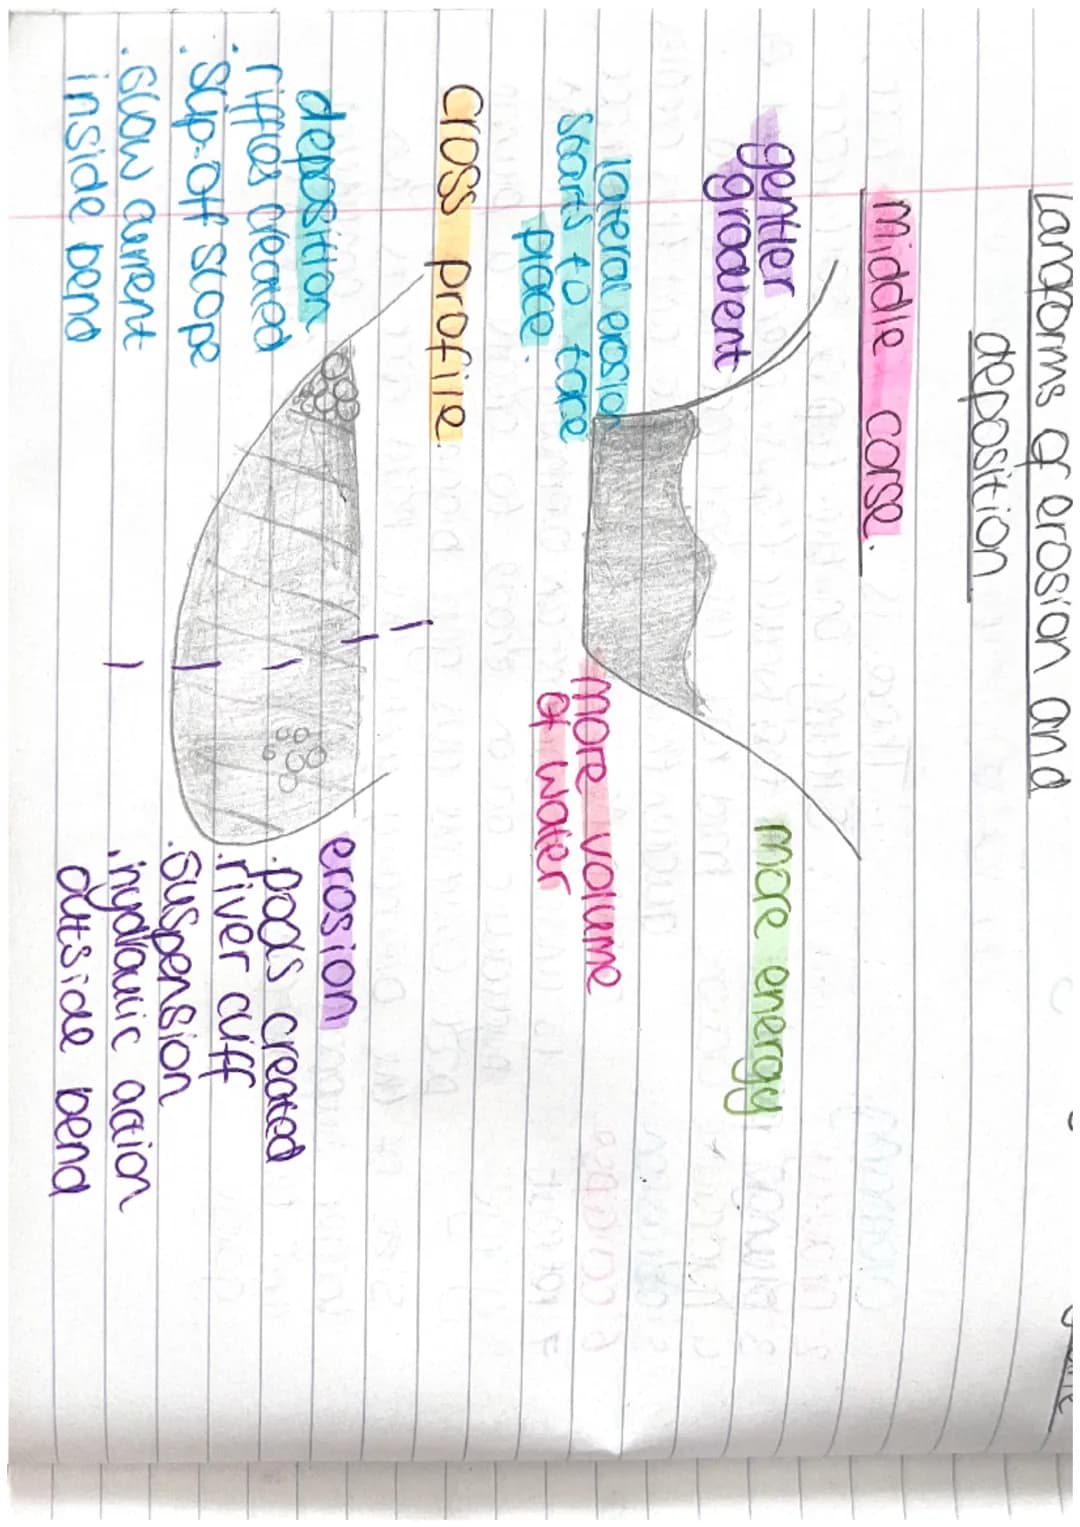 Landforms of erosion and
deposition
Middle corse.
gentler
gradient
more energy
lateral erosion
starts to take
place.
more volume
of water
cross profile.
deposition
riffles created
• slip-off slope
• slow current
inside bend
erosion
• pools created
• river cliff
• suspension
• hydraulic action
outside bend